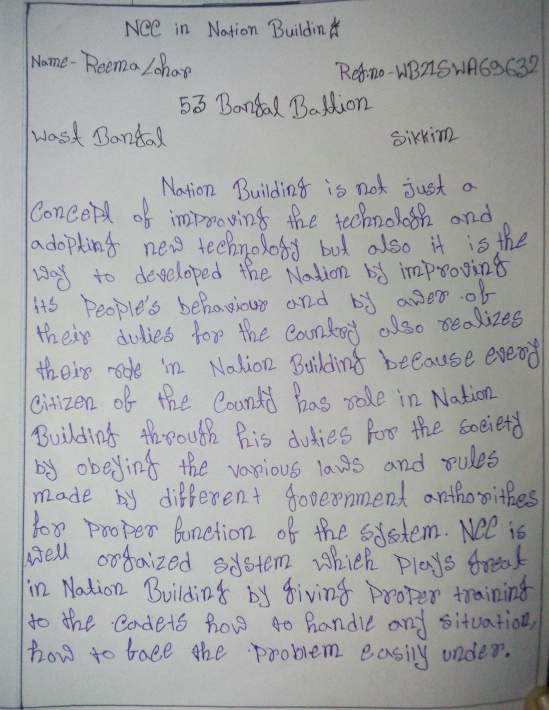 NCC in Nation Building
Name- Reema Lohar
Ref.no-WB21SWA69632
53 Bangal Battion
Wast Bangal
Sikkim
Nation Building is not just a
Concept of improving the technologh and
adopting new technology but also it is the
way to developed the Nation by improving
its People's behaviour and by awer of
their duties for the country also realizes
their role in Nation Building because every
Citizen of the County has role in Nation
Building through his duties for the society
by obeying the various laws and rules
made by different government anthorithes
for Proper function of the system. NCC is
well orgaized system which Plays great
in Nation Building by giving Proper training
to the cadets how to handle any situation,
how to face the Problem easily under.